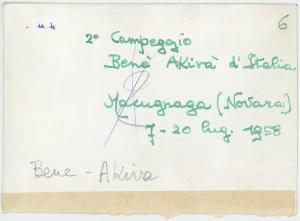 6
2° Campeggio
Benè Akivà d'Italia
Macugnaga (Novara)
7-20 lug. 1958
Bene - Akiva